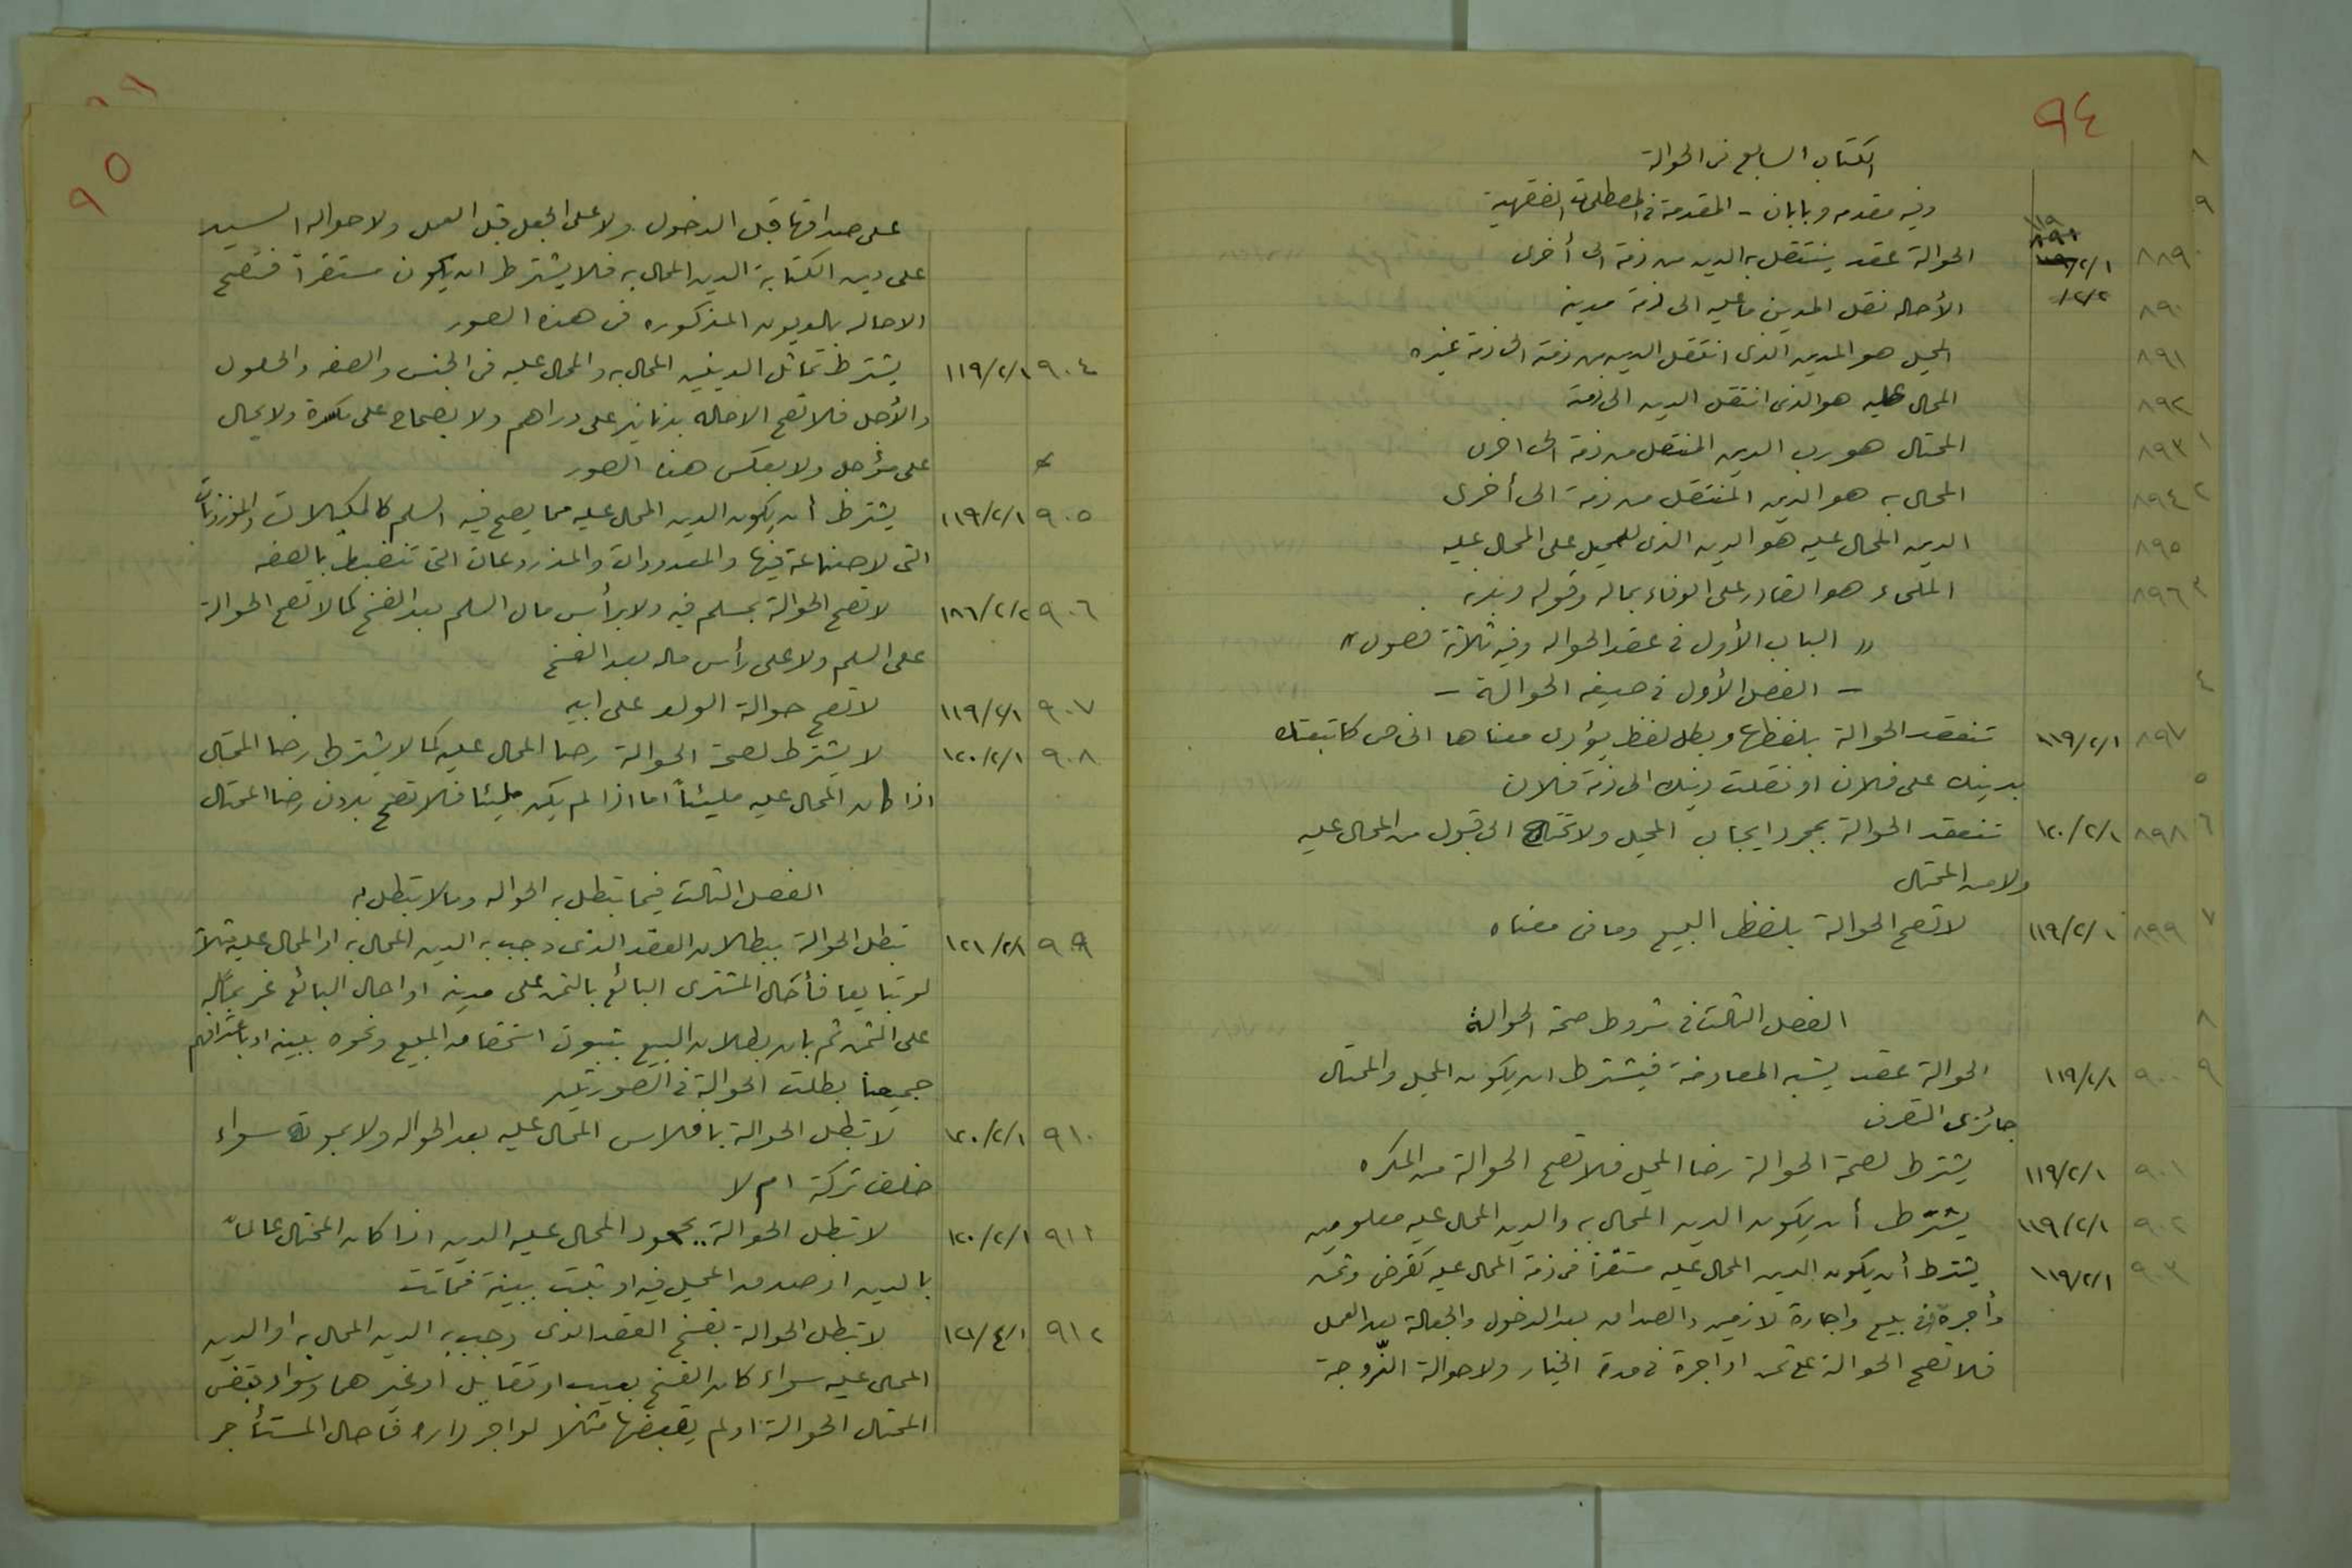 ٩٤
الكتاب السابع في الحوالة
وفيه مقدمه وبابان - المقدمة في المصطلحات الفقهية
٨٨٩ ١١٩/٢/١ الحوالة عقد ينتقل به الدين من ذمة الى أخرى
٨٩٠ ٢/٢/ الأحاله نقل المدين ما عليه الى ذمة مدينه
٨٩١ المحيل هو المدين الذى انتقل الدين من ذمته الى ذمة غيره
٨٩٢ المحال عليه هو الذى انتقل الدين الى ذمته
٨٩٣ المحتال هو رب الدين المنتقل من ذمة الى اخرى
٨٩٤ المحال به هو الدين المنتقل من ذمة الى أخرى
٨٩٥ الدين المحال عليه هو الدين الذى للمحيل على المحال عليه
٨٩٦ الملىء هو القادر على الوفاء بماله وقوله وبدنه
« الباب الأول في عقد الحواله وفيه ثلاثة فصول »
- الفصل الأول في صيغه الحوالة -
٨٩٧ ١١٩/٢/١ تنعقد الحوالة بلفظها وبكل لفظ يؤدى معناها الخاص كاتبعتك
بدينك على فلان او نقلت دينك الى ذمة فلان
٨٩٨ ١٢٠/٢/١ تنعقد الحوالة بمجرد ايجاب المحيل ولا تحتاج الى قبول من المحال عليه
ولا من المحتال
٨٩٩ ١١٩/٢/١ لا تصح الحوالة بلفظ البيع وما في معناه
الفصل الثالث في شروط صحة الحوالة
٩٠٠ ١١٩/٢/١ الحوالة عقد يشبه المعاوضة فيشترط ان يكون المحيل والمحتال
جائزى التصرف
٩٠١ ١١٩/٢/١ يشترط لصحة الحوالة رضا المحيل فلا تصح الحوالة من المكره
٩٠٢ ١١٩/٢/١ يشترط أن يكون الدين المحال به والدين المحال عليه معلومين
٩٠٣ ١١٩/٢/١ يشترط أن يكون الدين المحال عليه مستقرا في ذمة المحال عليه كقرض وثمن
وأجرة في بيع واجارة لازمين والصداق بعد الدخول والجعالة بعد العمل
فلا تصح الحوالة على ثمن او اجرة في مدة الخيار ولا حوالة الزّوجة
٩٥
على صداقها قبل الدخول ولا على الجعل قبل العمل ولا حواله السيد
على دين الكتابة الدين المحال به فلا يشترط ان يكون مستقراً فتصح
الاحاله بالديون المذكوره في هذه الصور
٩٠٤ ١١٩/٢/١ يشترط تماثل الدينين المحال به والمحال عليه في الجنس والصفه والحلول
والأجل فلا تصح الاحاله بدنانير على دراهم ولا بصحاح على مكسرة ولا بحال
على مؤجل ولا بعكس هذه الصور
٩٠٥ ١١٩/٢/١ يشترط أن يكون الدين المحال عليه مما يصح فيه السلم كالمكيلات والموزونات
التى لا صناعة فيها والمعدودات والمذروعات التى تنضبط بالصفه
٩٠٦ ١٨٦/٢/٢ لا تصح الحوالة بمسلم فيه ولا برأس مال السلم بعد الفسخ كما لا تصح الحوالة
على السلم ولا على رأس ماله بعد الفسخ
٩٠٧ ١١٩/٢/١ لا تصح حوالة الولد على ابيه
٩٠٨ ١٢٠/٢/١ لا يشترط لصحة الحوالة رضا المحال عليه كما لا يشترط رضا المحتال
اذا كان المحال عليه مليئاً اما اذا لم يكن مليئا فلا تصح بدون رضا المحتال
الفصل الثالث فيما تبطل به الحواله وما لا تبطل به
٩٠٩ ١٢١/٢/١ تبطل الحوالة ببطلان العقد الذى وجب به الدين المحال به او المحال عليه مثلاً
لو تبايعا فأحال المشترى البائع بالثمن على مدينه او احال البائع غريماً له
على الثمن ثم بان بطلان البيع بثبوت استحقاق المبيع ونحوه ببينه او باعترافهم
جميعا بطلت الحوالة في الصورتين
٩١٠ ١٢٠/٢/١ لا تبطل الحوالة بافلاس المحال عليه بعد الحواله ولا بموته سواء
خلف تركة ام لا
٩١١ ١٢٠/٢/١ لا تبطل الحوالة بجحود المحال عليه الدين اذا كان المحتال عالماً
بالدين او صدق المحيل فيه او ثبت ببينة فماتت
٩١٢ ١٢١/٤/١ لا تبطل الحوالة بفسخ العقد الذى وجب به الدين المحال به او الدين
المحال عليه سواء كان الفسخ بعيب او تقايل او غيرهما وسواء قبض
المحتال الحوالة او لم يقبضها مثلا لو اجر داره فاحال المستأجر